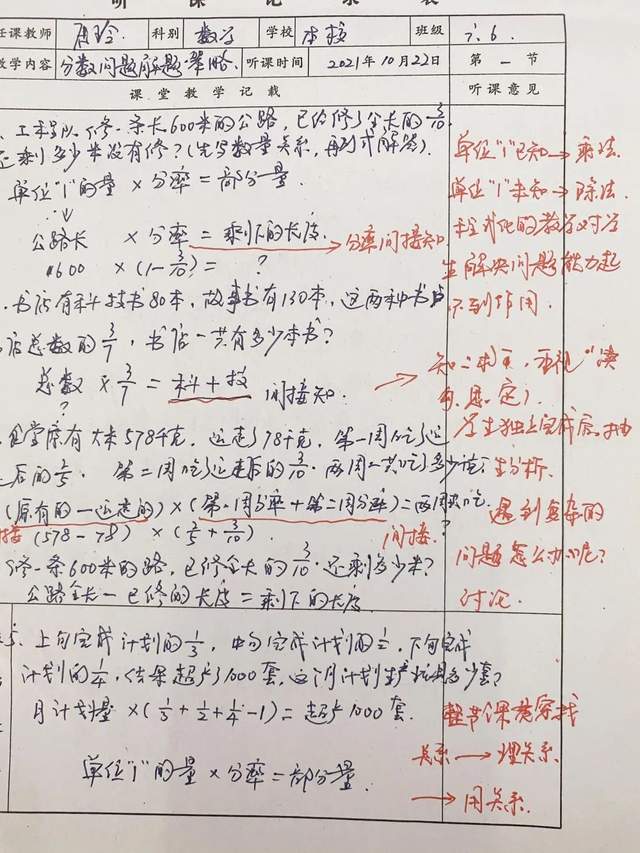 听 课 记 录 表
任课教师 唐玲. 科别 数学 学校 本校 班级 六.6.
教学内容 分数问题解题策略. 听课时间 2021年10月22日 第 一 节
课 堂 教 学 记 载 听课意见
工程队修一条长600米的公路, 已经修了全长的3/10.
还剩多少米没有修?(先写数量关系, 再列式解答).
单位"1"的量 × 分率 = 部分量.
公路长 × 分率 = 剩下的长度. 分率间接知
600 × (1-3/10) = ?
书店有科技书80本, 故事书有130本, 这两种书占
店总数的3/7, 书店一共有多少本书?
总数 × 3/7 = 科+技 间接知.
?
食堂原有大米578千克, 运走78千克, 第一周吃了运
走后的 第二周吃了运走后的3/10. 两周一共吃了多少
(原有的-运走的)×(第一周分率+第二周分率)=两周共吃
(578-78) × ( +3/10) 间接. ?
修一条600米的路, 已修全长的3/10. 还剩多少米?
公路全长-已修的长度=剩下的长度
5. 上旬完成计划的1/3, 中旬完成计划的1/2, 下旬完成
计划的1/4, 结果超产1000套, 这个月计划生产 多少套?
月计划量×(1/3+1/2+1/4-1)=超产1000套.
单位"1"的量×分率=部分量.
单位"1"已知→乘法.
单位"1"未知→除法.
程式化的教学对学
生解决问题能力起
不到作用.
学生独立完成后, 抽
生分析.
遇到复杂的
问题怎么办呢?
讨论.
整节课贯穿找
关系→理关系.
→用关系.